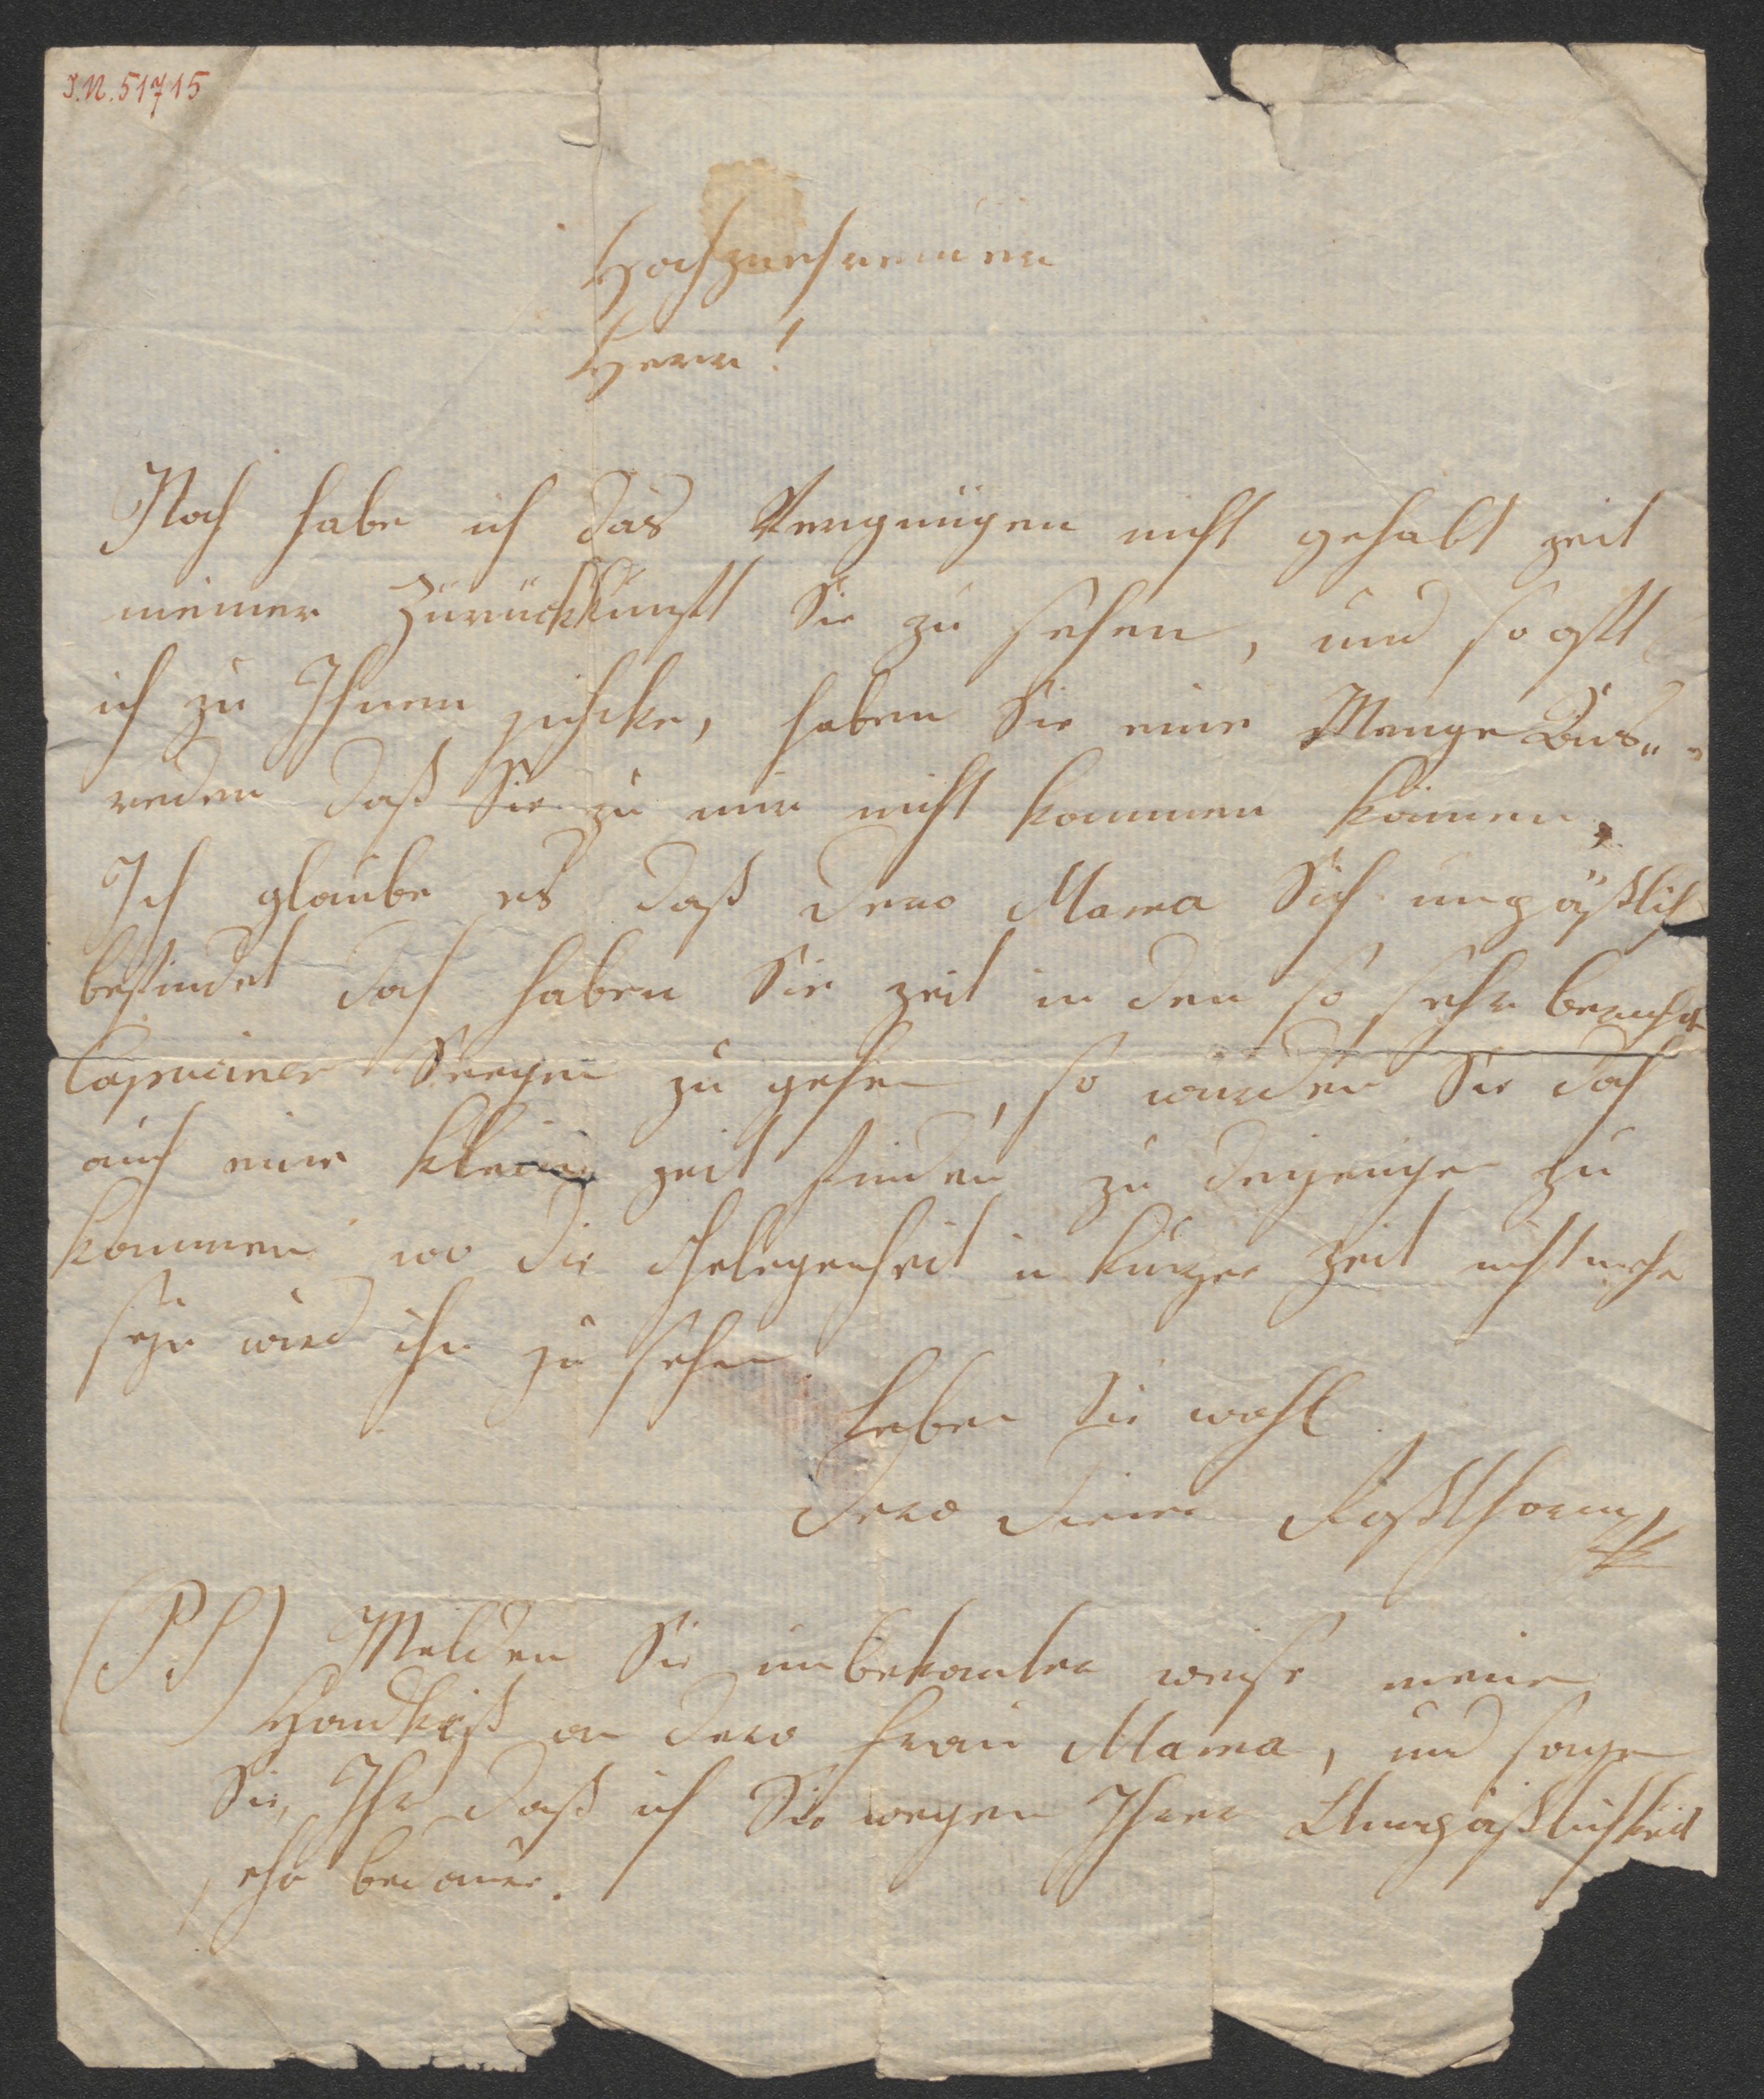 I.N. 51715
Hochzuehrender
Herr!
Noch habe ich das Vergnügen nicht gehabt zeit
meiner Zurückkunft Sie zu sehen, und so oft
ich zu Ihnen schicke, haben Sie eine Menge Aus„
reden daß Sie zu mir nicht kommen können.
Ich glaube es daß Dero Mama Sich unpäßlich
befindet doch haben Sie zeit in den so sehr
Capuciner Seegen zu gehen, so würden Sie doch
auch eine kleine zeit finden zu derjenigen zu
kommen wo die Gelegenheit in kurzer Zeit nicht mehr
seyn wird ihn zu sehen
Leben Sie wohl
Dero Diener Rosthorn
(PS) Melden Sie unbekanter weise meinen
Handkuß an Dero Frau Mama, und sagen
Sie, Ihr daß ich Sie wegen Ihrer Unpäßlichkeit
sehr bedaure.